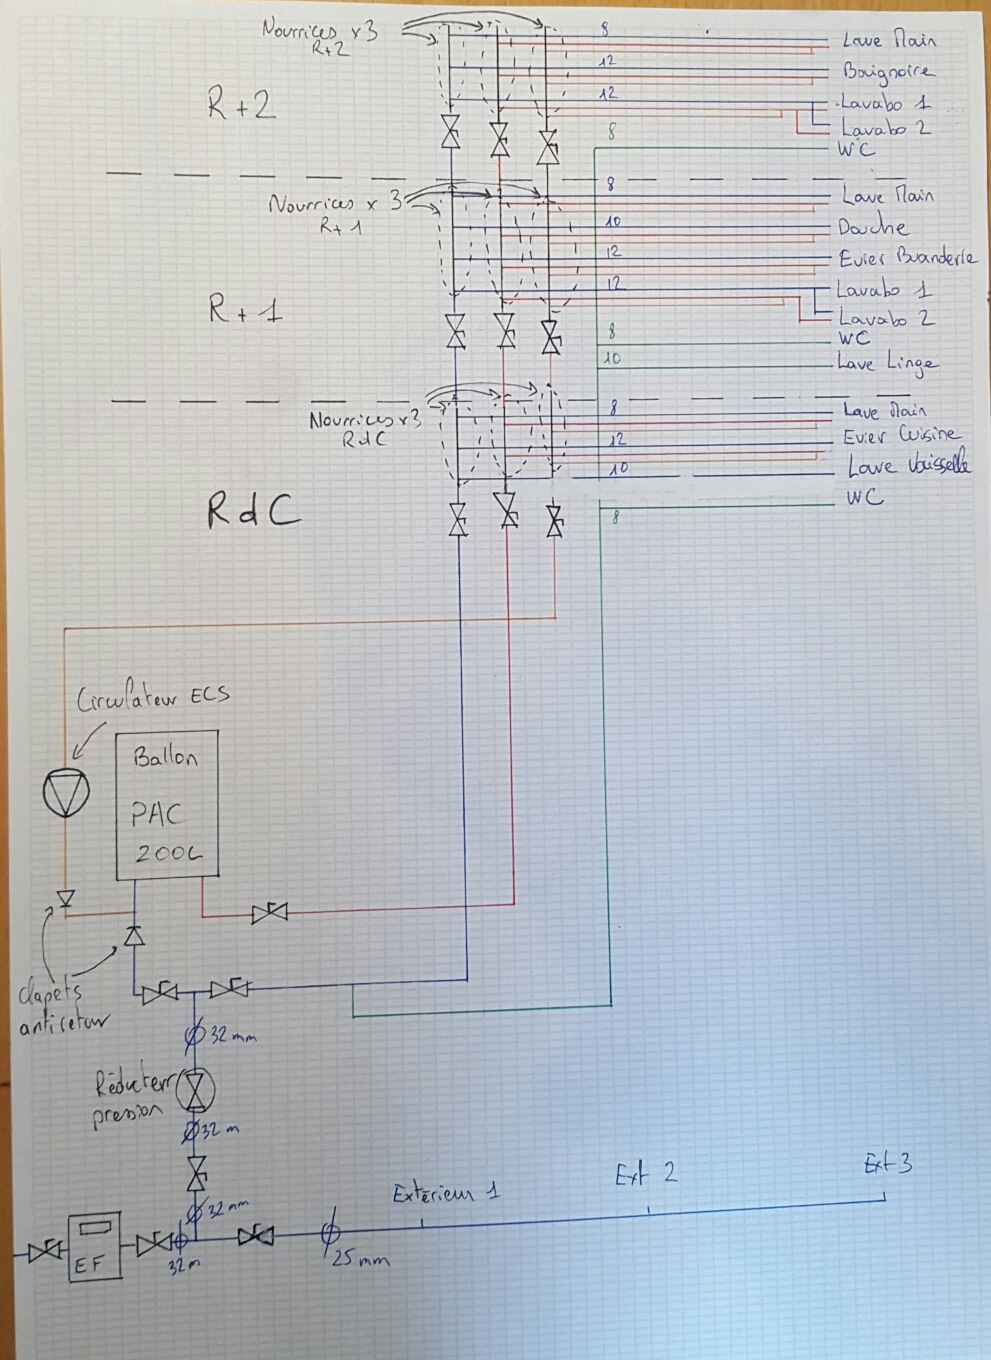 Nourrices x 3
R+2
8
Lave Main
12
Baignoire
R+2
12
Lavabo 1
Lavabo 2
8
WC
8
Lave Main
Nourrices x 3
R+1
10
Douche
12
Evier Buanderie
12
Lavabo 1
R+1
Lavabo 2
8
WC
10
Lave Linge
8
Lave Main
Nourrices x3
RdC
12
Evier Cuisine
10
Lave Vaisselle
WC
RdC
8
Circulateur ECS
Ballon
PAC
200L
Clapets
antiretour
Ø 32 mm
Réducteur
pression
Ø 32 m
Ø 32 mm
Extérieur 1
Ext 2
Ext 3
EF
32 m
25 mm